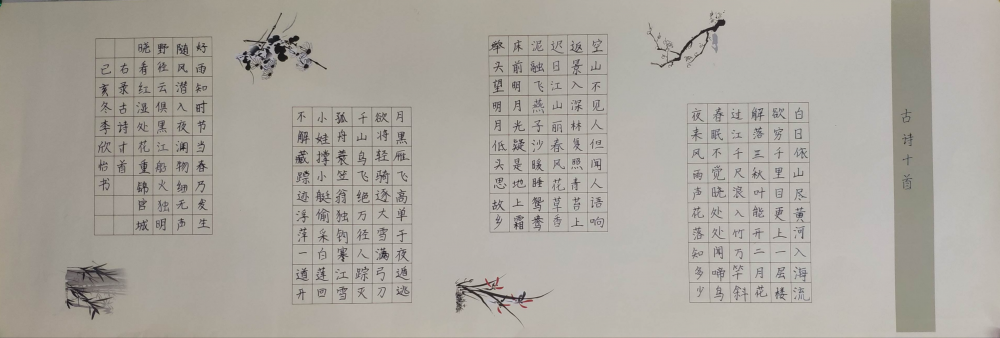 古诗十首
白日依山尽黄河入海流
欲穷千里目更上一层楼
解落三秋叶能开二月花
过江千尺浪入竹万竿斜
春眠不觉晓处处闻啼鸟
夜来风雨声花落知多少
空山不见人但闻人语响
返景入深林复照青苔上
迟日江山丽春风花草香
泥融飞燕子沙暖睡鸳鸯
床前明月光疑是地上霜
举头望明月低头思故乡
月黑雁飞高单于夜遁逃
欲将轻骑逐大雪满弓刀
千山鸟飞绝万径人踪灭
孤舟蓑笠翁独钓寒江雪
小娃撑小艇偷采白莲回
不解藏踪迹浮萍一道开
好雨知时节当春乃发生
随风潜入夜润物细无声
野径云俱黑江船火独明
晓看红湿处花重锦官城
右录古诗十首
己亥冬季欣怡书